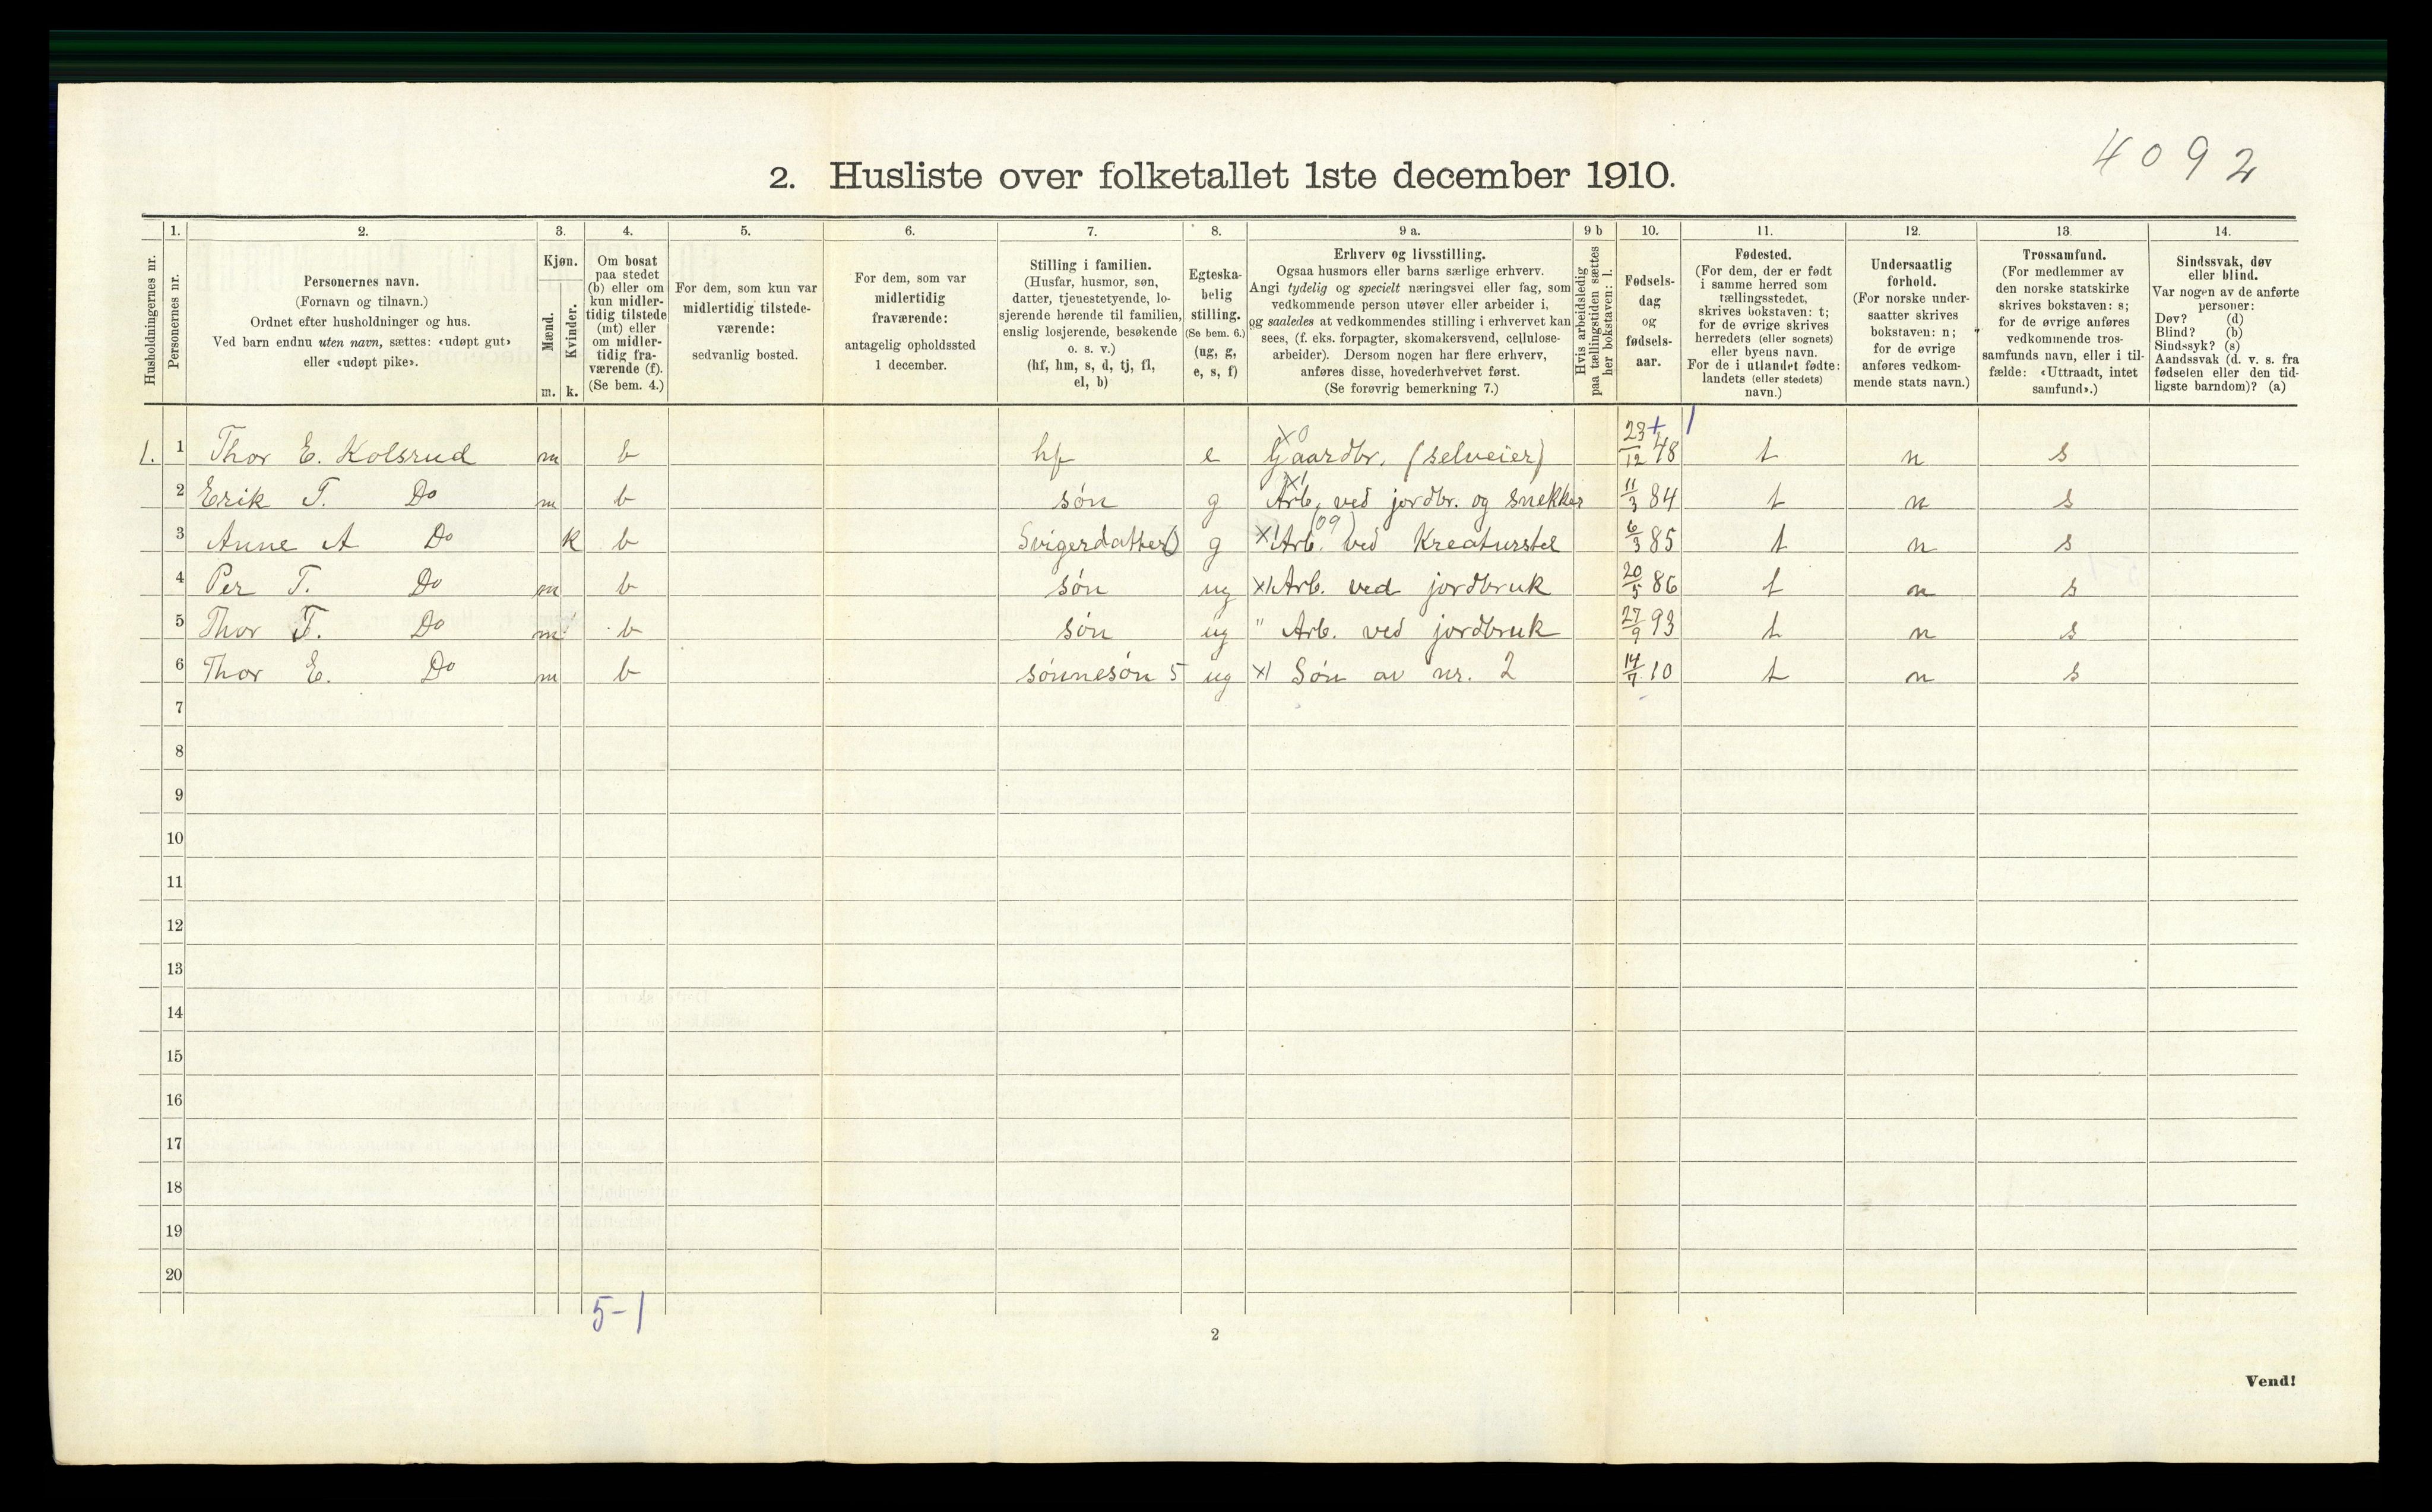 4092
2. Husliste over folketallet 1ste december 1910.
Husholdningernes nr.
1.
Personernes nr.
2.
Personernes navn.
(Fornavn og tilnavn.)
Ordnet efter husholdninger og hus.
Ved barn endnu uten navn, sættes: «udøpt gut»
eller «udøpt pike».
3.
Kjøn.
Mænd.
Kvinder.
m. k.
4.
Om bosat
paa stedet
(b) eller om
kun midler-
tidig tilstede
(mt) eller
om midler-
tidig fra-
værende (f).
(Se bem. 4.)
5.
For dem, som kun var
midlertidig tilstede-
værende:
sedvanlig bosted.
6.
For dem, som var
midlertidig
fraværende:
antagelig opholdssted
1 december.
7.
Stilling i familien.
(Husfar, husmor, søn,
datter, tjenestetyende, lo-
sjerende hørende til familien,
enslig losjerende, besøkende
o. s. v.)
(hf, hm, s, d, tj, fl,
el, b)
8.
Egteska-
belig
stilling.
(Se bem. 6.)
(ug, g,
e, s, f)
9 a.
Erhverv og livsstilling.
Ogsaa husmors eller barns særlige erhverv.
Angi tydelig og specielt næringsvei eller fag, som
vedkommende person utøver eller arbeider i,
og saaledes at vedkommendes stilling i erhvervet kan
sees, (f. eks. forpagter, skomakersvend, cellulose-
arbeider). Dersom nogen har flere erhverv,
anføres disse, hovederhvervet først.
(Se forøvrig bemerkning 7.)
9 b
Hvis arbeidsledig
paa tællingstiden sættes
her bokstaven: l.
10.
Fødsels-
dag
og
fødsels-
aar.
11.
Fødested.
(For dem, der er født
i samme herred som
tællingsstedet,
skrives bokstaven: t;
for de øvrige skrives
herredets (eller sognets)
eller byens navn.
For de i utlandet fødte:
landets (eller stedets)
navn.)
12.
Undersaatlig
forhold.
(For norske under-
saatter skrives
bokstaven: n;
for de øvrige
anføres vedkom-
mende stats navn.)
13.
Trossamfund.
(For medlemmer av
den norske statskirke
skrives bokstaven: s;
for de øvrige anføres
vedkommende tros-
samfunds navn, eller i til-
fælde: «Uttraadt, intet
samfund».)
14.
Sindssvak, døv
eller blind.
Var nogen av de anførte
personer:
Døv? (d)
Blind? (b)
Sindssyk? (s)
Aandssvak (d. v. s. fra
fødselen eller den tid-
ligste barndom)? (a)
1. 1 Thor E. Kolsrud m b hf e X0 Gaardbr. (selveier) 23/12 48 + 1 t n s
2 Erik T. Do m b søn g X1 Arb. ved jordbr. og snekker 11/3 84 t n s
3 Anne A Do k b Svigerdatter 0 g X1 Arb. (09) ved Kreaturstel 6/3 85 t n s
4 Per T. Do m b søn ug X1 Arb. ved jordbruk 20/5 86 t n s
5 Thor T. Do m b søn ug " Arb. ved jordbruk 27/9 93 t n s
6 Thor E. Do m b sønnesøn 5 ug X1 Søn av nr. 2 14/7 10 t n s
7
8
9
10
11
12
13
14
15
16
17
18
19
20
5-1
2
Vend!